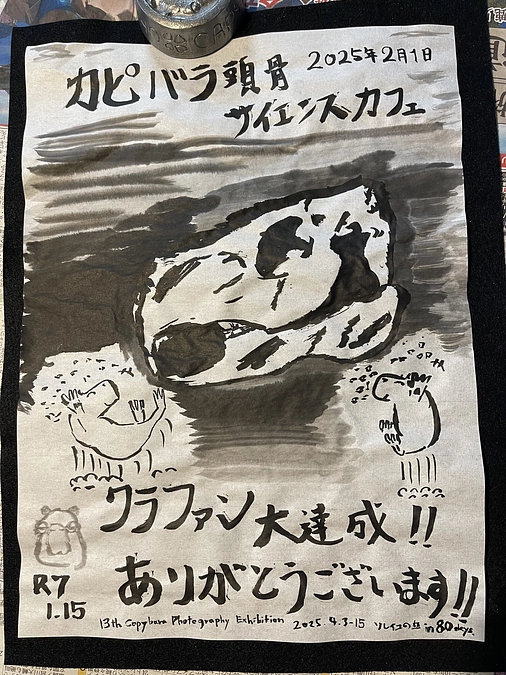 カピバラ頭骨 2025年2月1日
サイエンスカフェ
クラファン大達成!!
ありがとうございます!!
R7
1.15
13th Capybara Photography Exhibition 2025.4.3-15 ソレイユの丘 in 80 days